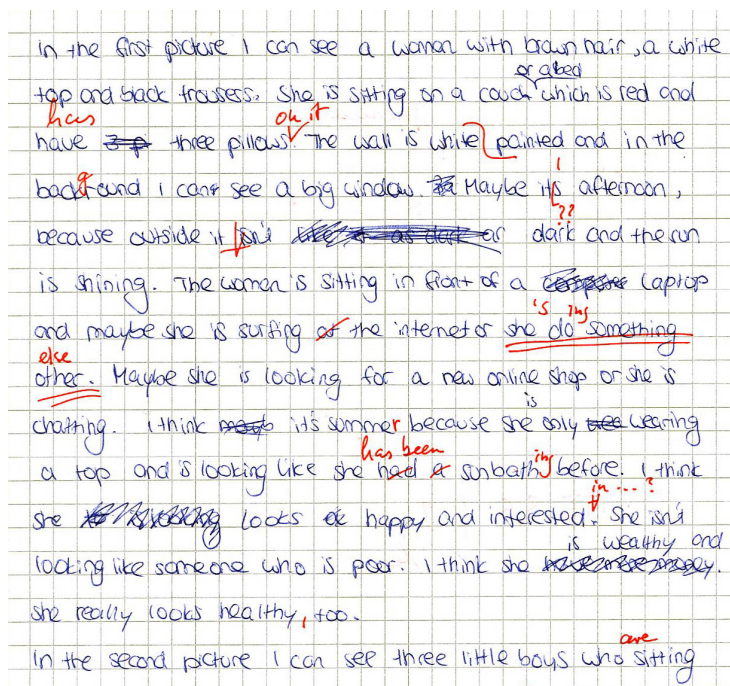 In the first picture I can see a woman with brown hair, a white
or a bed
top and black trousers. She is sitting on a couch which is red and
has on it
have three pillows. The wall is white painted and in the
g
background I can see a big window. Maybe it's afternoon,
??
because outside it isn't dark and the sun
is shining. The women is sitting in front of a laptop
's ing
and maybe she is surfing of the internet or she do something
else
other. Maybe she is looking for a new online shop or she is
is
chatting. I think it's summer because she only wearing
has been ing
a top and is looking like she had a sunbath before. I think
in ... ?
she looks happy and interested. She isn't
is wealthy and
looking like someone who is poor. I think she
she really looks healthy, too.
are
In the second picture I can see three little boys who sitting